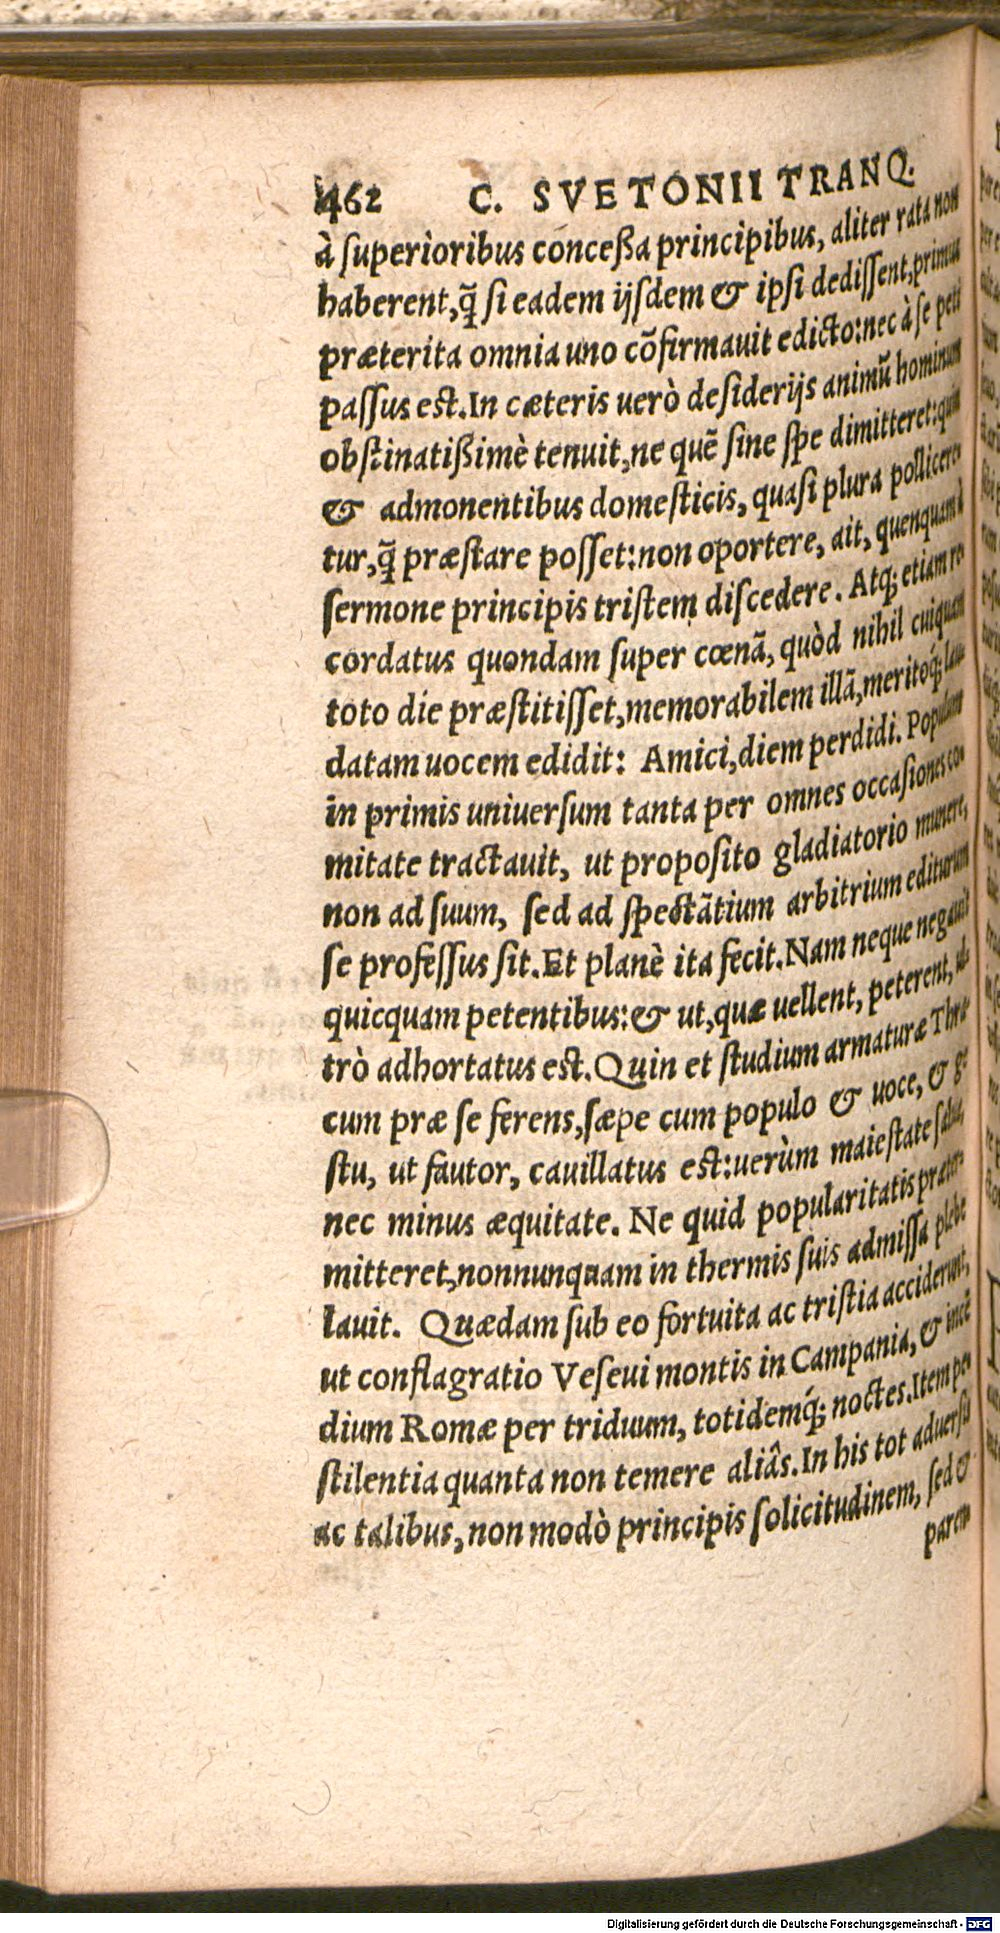 462 C. SVETONII TRANQ.
à ſuperioribus conceßa principibus, aliter rata non
haberent, q̃ ſi eadem ijſdem & ipſi dediſſent, primus
præterita omnia uno cõfirmauit edicto: nec à ſe peti
paſſus eſt. In cæteris uerò deſiderijs animũ hominum
obſtinatißimè tenuit, ne quẽ ſine ſpe dimitteret: quin
& admonentibus domeſticis, quaſi plura pollicere
tur, q̃ præſtare poſſet: non oportere, ait, quenquam à
ſermone principis triſtem diſcedere. Atq; etiam re
cordatus quondam ſuper cœnã, quòd nihil cuiquam
toto die præſtitiſſet, memorabilem illã, meritoq́; lau
datam uocem edidit: Amici, diem perdidi. Populum
in primis uniuerſum tanta per omnes occaſiones co
mitate tractauit, ut propoſito gladiatorio munere,
non ad ſuum, ſed ad ſpectãtium arbitrium editurum
ſe profeſſus ſit. Et planè ita fecit. Nam neque negauit
quicquam petentibus: & ut, quæ uellent, peterent, ul
trò adhortatus eſt. Quin et ſtudium armaturæ Thræ
cum præ ſe ferens, ſæpe cum populo & uoce, & ge
ſtu, ut fautor, cauillatus eſt: uerùm maieſtate ſalua,
nec minus æquitate. Ne quid popularitatis præter
mitteret, nonnunquam in thermis ſuis admiſſa plebe
lauit. Quædam ſub eo fortuita ac triſtia acciderunt,
ut conflagratio Veſeui montis in Campania, & incẽ
dium Romæ per triduum, totidemq́; noctes. Item pe
ſtilentia quanta non temere aliâs. In his tot aduerſis
ac talibus, non modò principis ſolicitudinem, ſed &
parem
Digitalisierung gefördert durch die Deutsche Forschungsgemeinschaft - DFG